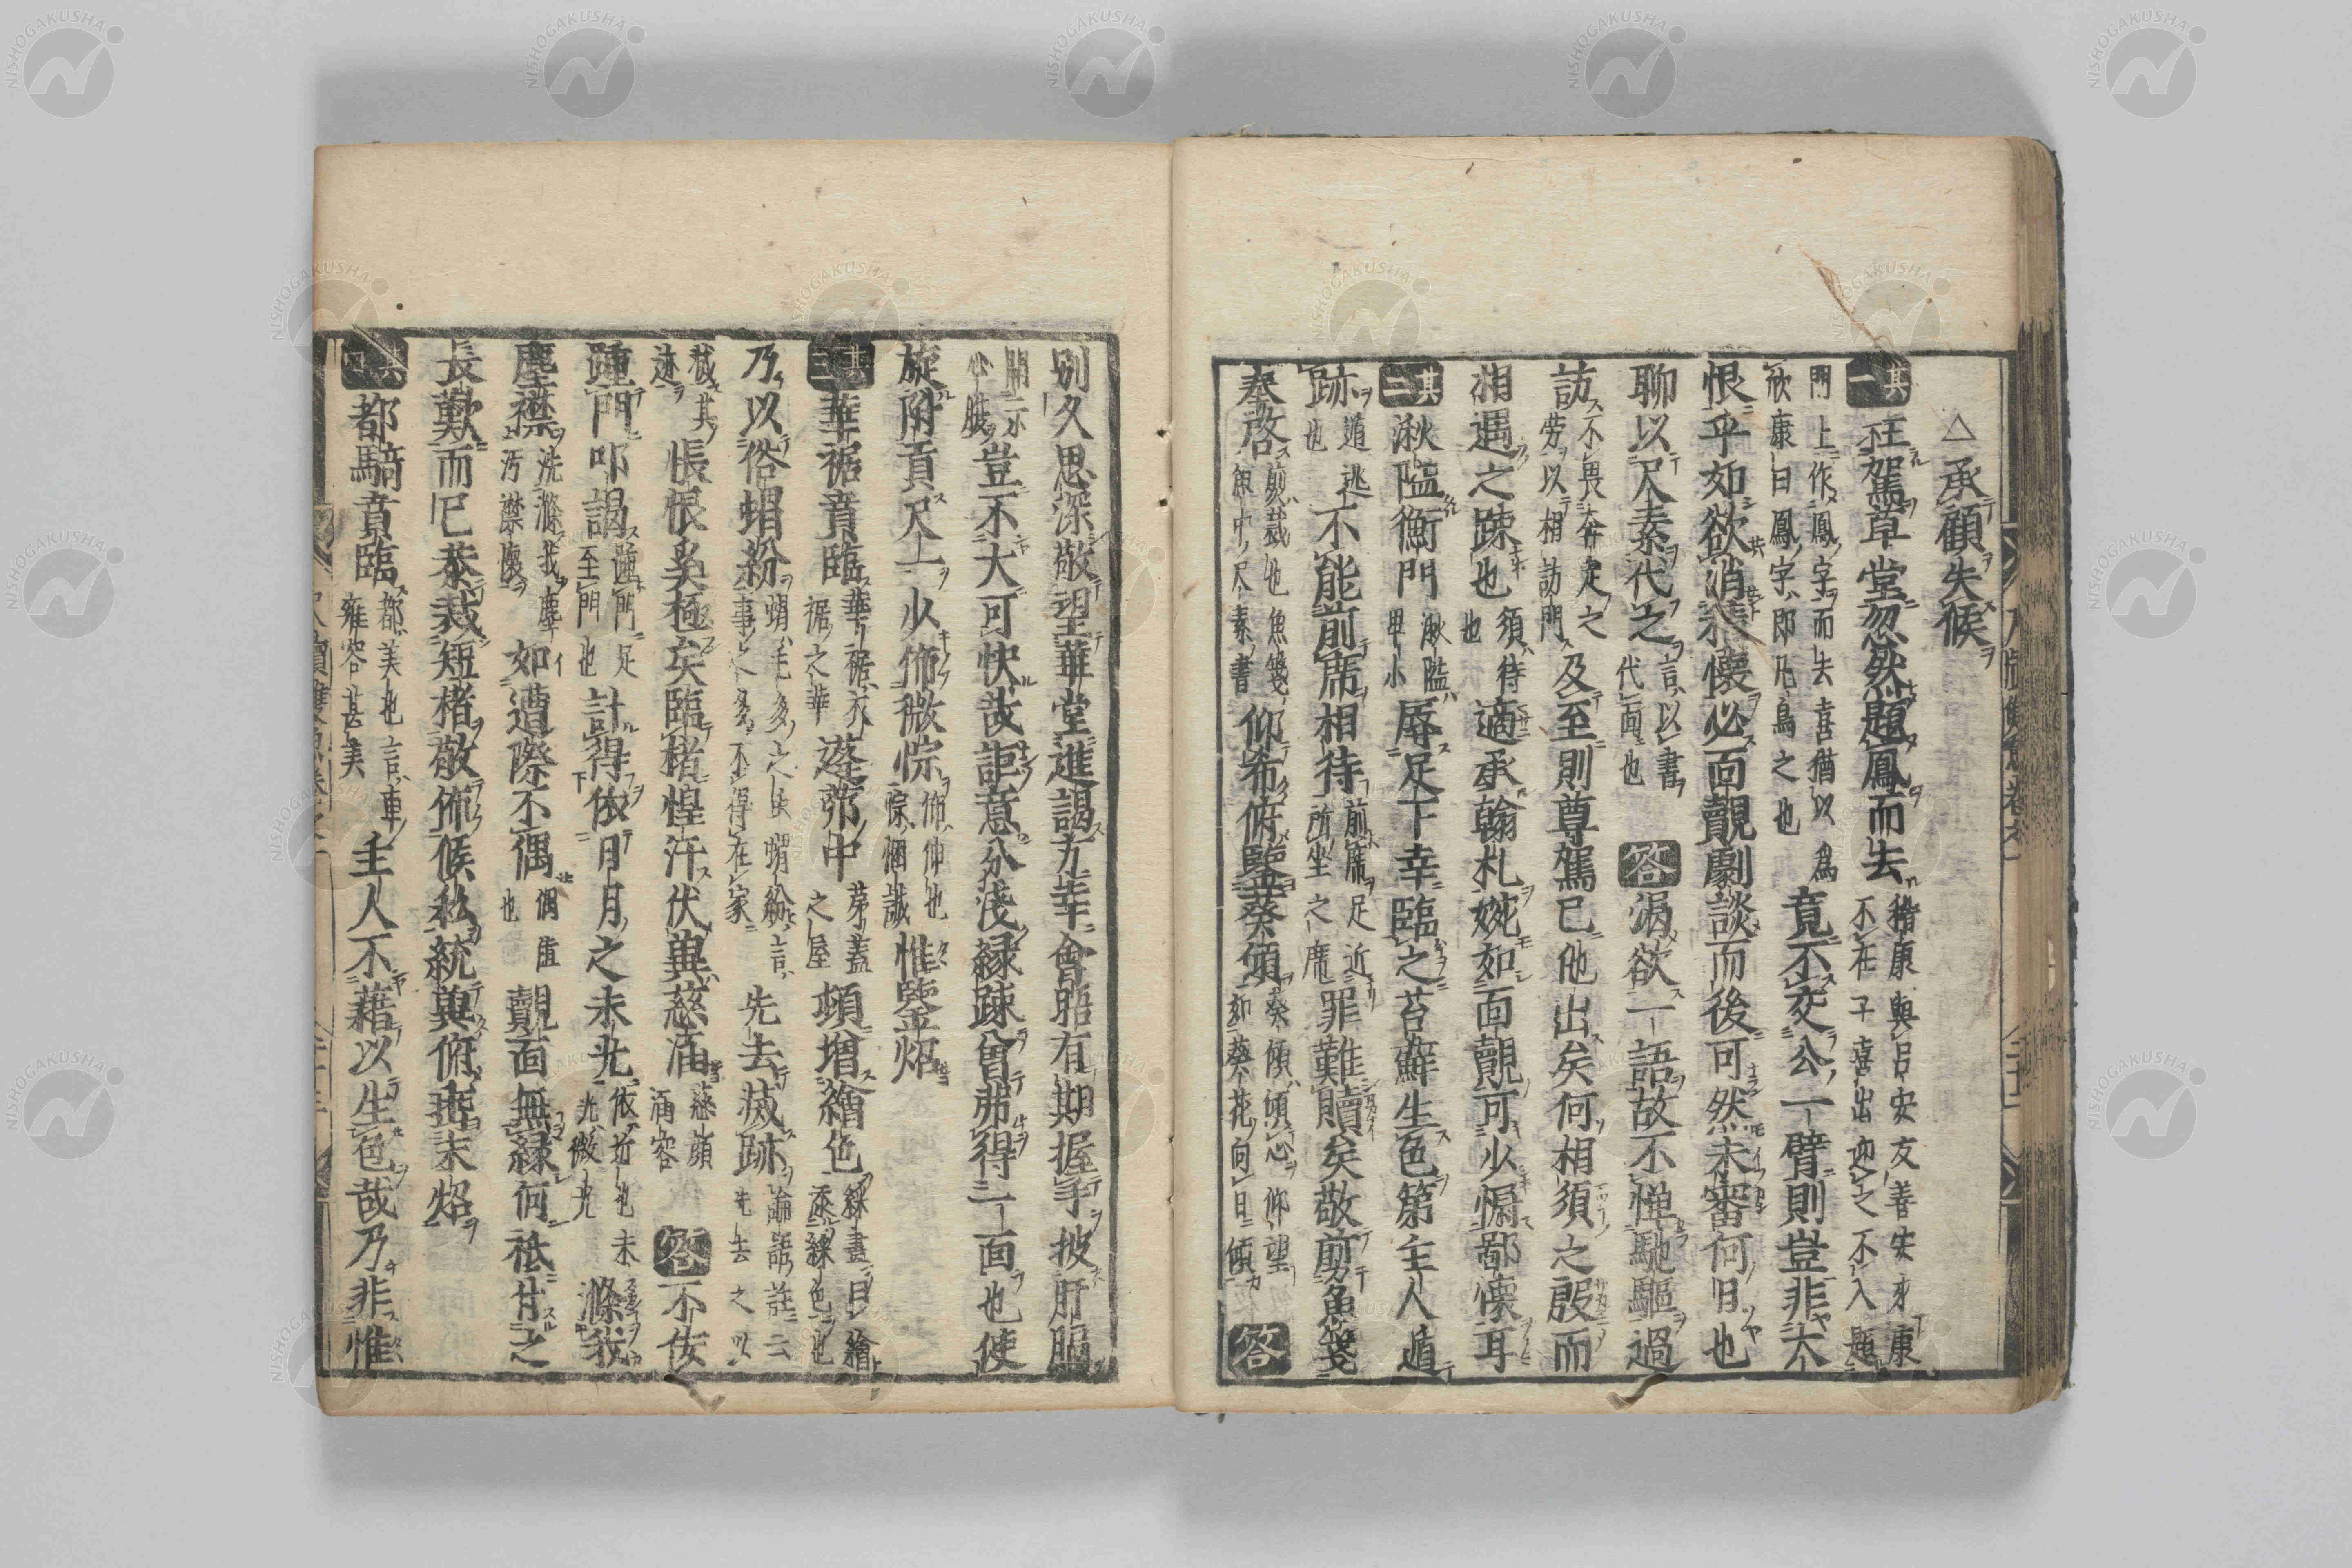 △承顧失候
其一 枉駕草堂忽然題鳳而去 稽康與吕安友善安來康不在子喜出迎之不入題
門上作鳳字而去喜猶以為欣康曰鳳字即凡鳥之也 竟不交公一臂則豈非大
恨乎如欲消恭懷必面覿劇談而後可然未審何日也
聊以尺素代之 言以書代面也 答 渴欲一語故不憚馳驅過
訪 不畏奔走之劳以相訪門 及至則尊駕已他出矣何相須之殷而
相遇之踈也 須待也 適承翰札婉如面覿可少慰鄙懷耳
其二 湫隘衡門 湫隘卑小 辱足下幸臨之苔蘚生色第主人遁
跡 遁逃也 不能前席相待 前席足近所坐之席 罪難贖矣敬剪魚箋
奉啓 剪裁也魚箋魚中尺素書 仰希俯鑒葵傾 葵傾傾心仰望如葵花向日傾 答
別久思深敬望華堂進謁方幸會晤有期握手披肝膈
開示心膓 豈不大可快哉詎意分淺緣踈曾弗得一面也使
旋附貢尺一少佈微悰 佈伸也悰悃誠 惟鑒炤
其三 華裾賁臨 華裾衣裾之華 蓬茆中 茅蓋之屋 頓增繪色 綵畫曰繪丞綵色也
乃以俗蝟紛 蝟毛多之虫蝟紛言事之多不得在家 先去滅跡 論語註云先去之以
滅其迹 悵恨奚極矣臨楮惶汗伏兾慈涵 慈顏涵容 答 不佞
踵門叩謁 踵門足至門也 計得依日月之未光 依近也未光微光 滌我
塵襟 洗滌我塵汚襟懷 如遭際不偶 偶值也 覿面無緣何祗甘之
長歎而已恭裁短楮敬佈候私統兾俯垂末炤
其四 都騎賁臨 都美也言車雍容甚美 主人不藉以生色哉乃非惟